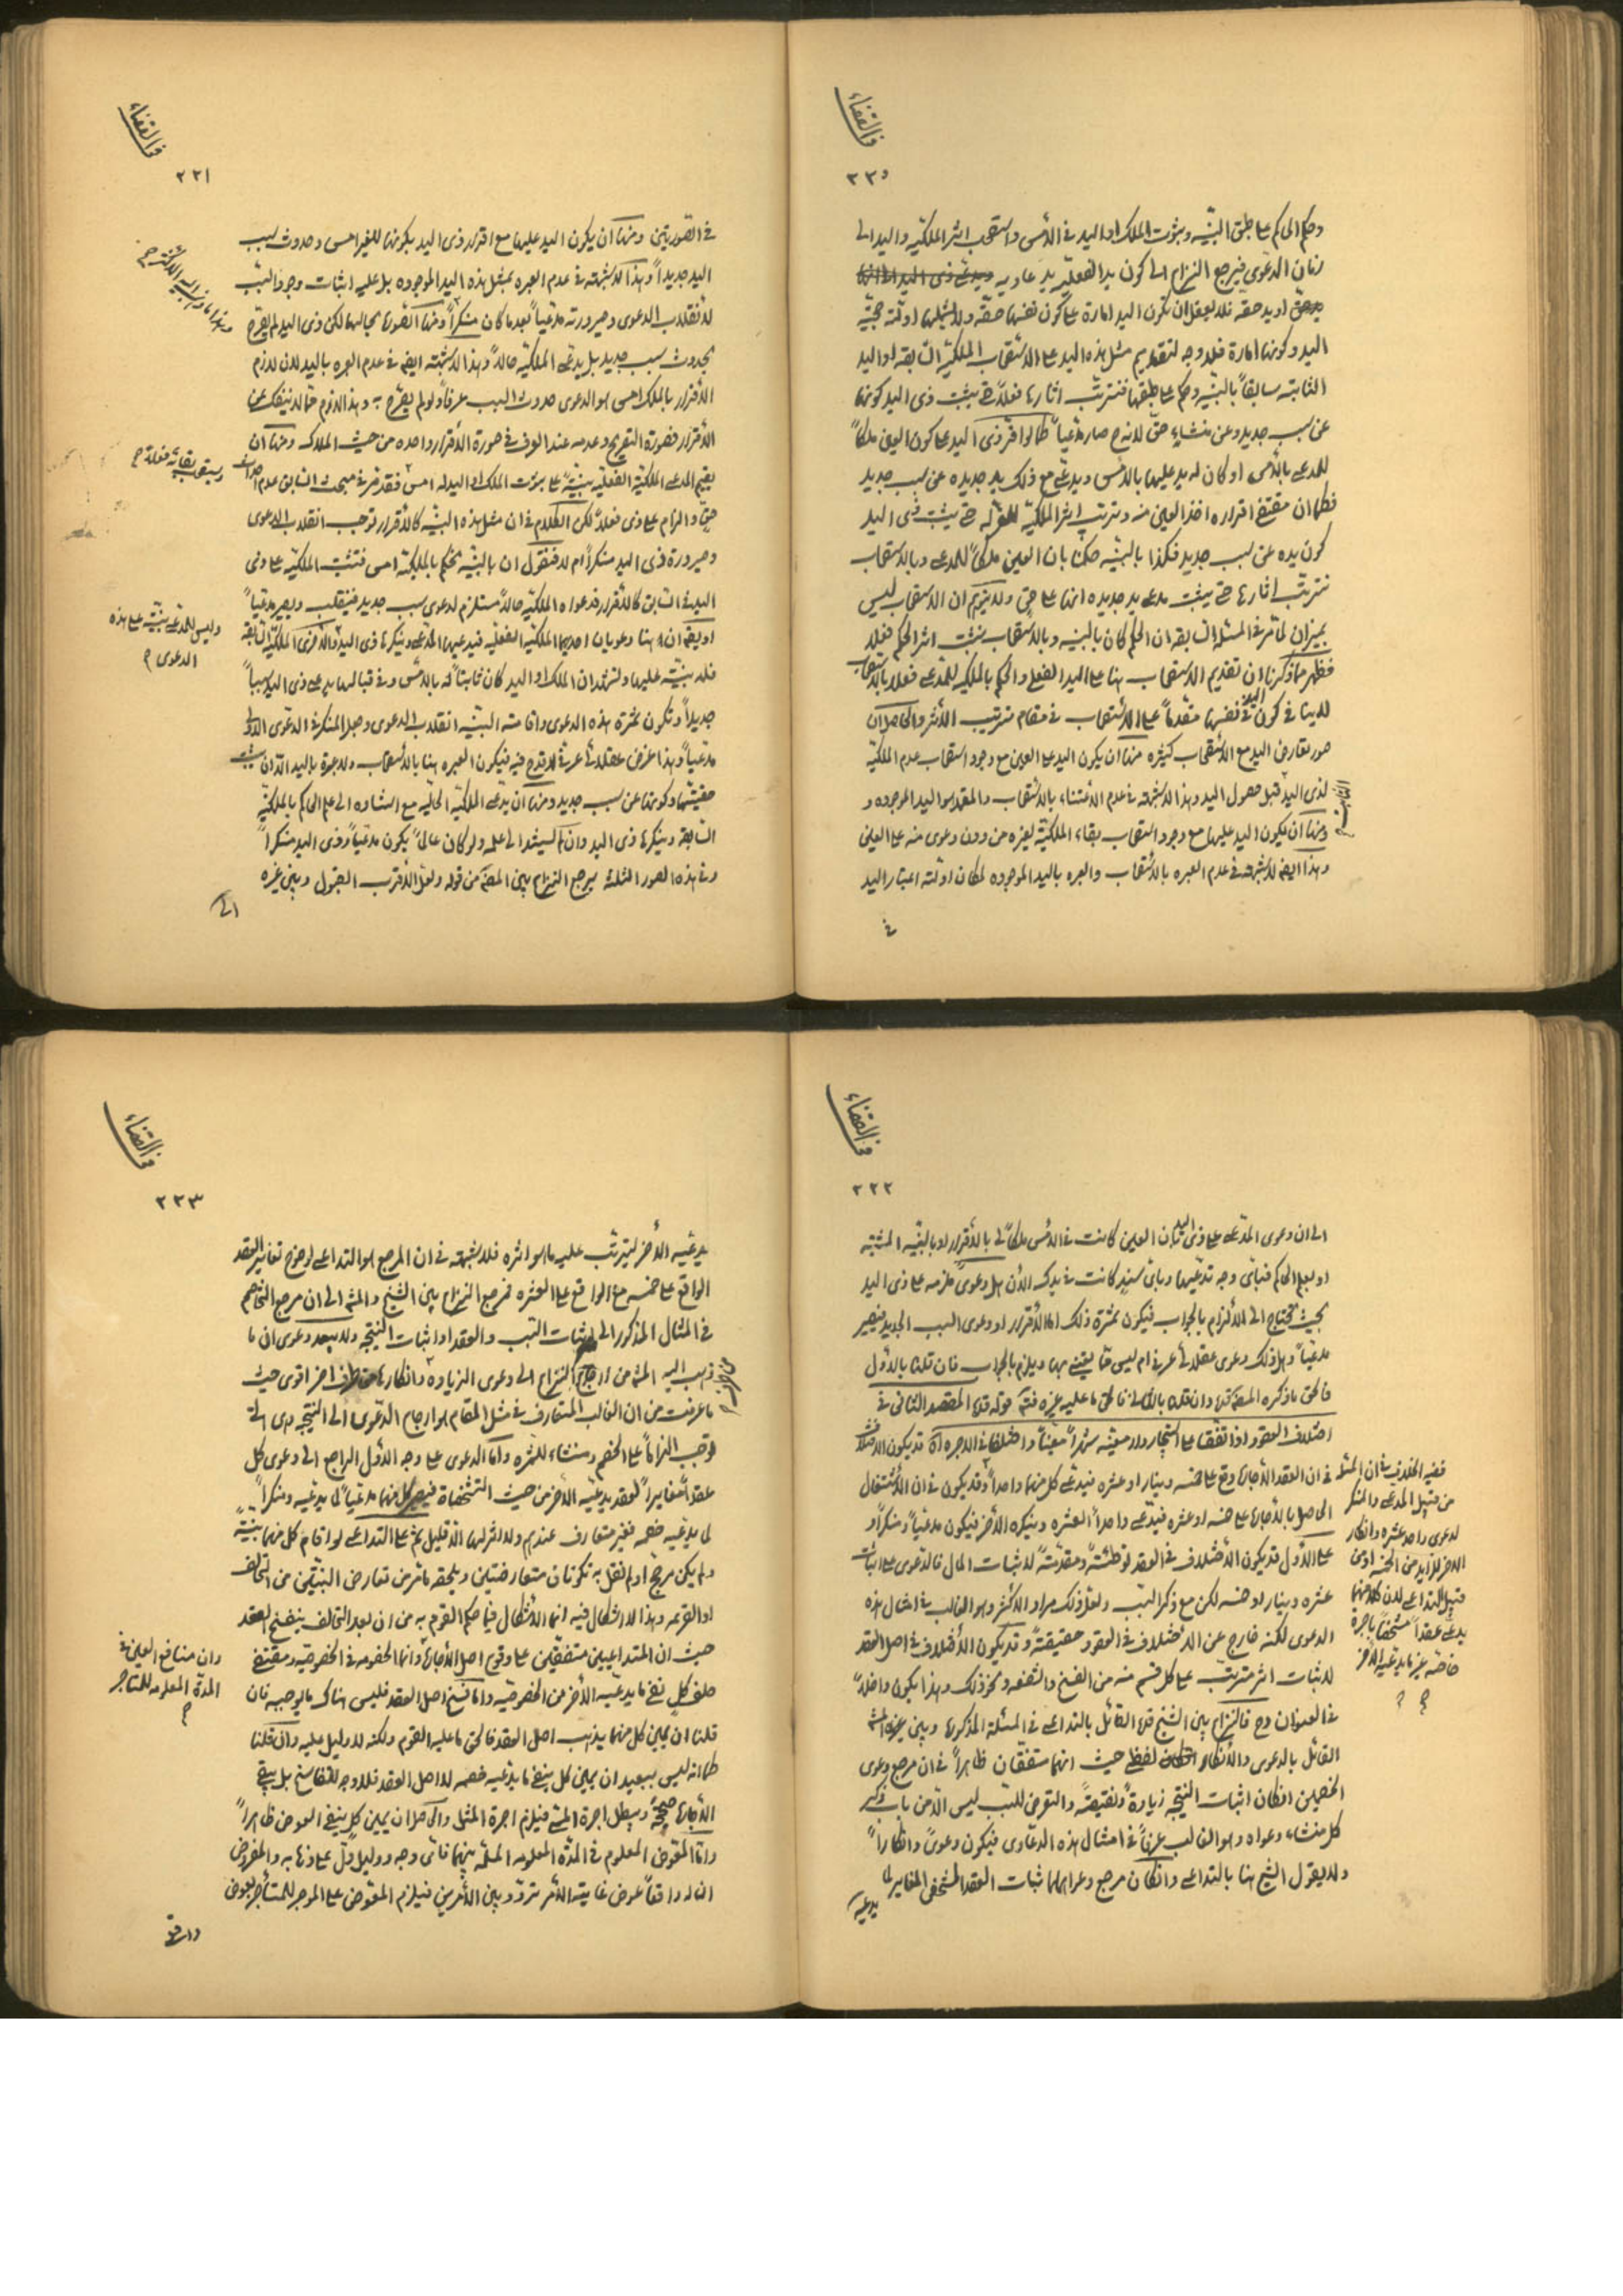 في القضاء
٢٢٠
وحكم الحاكم على طبق البينه وبثوت الملك او اليد في الأمس واستصحب اثر الملكيه واليد الى
زمان الدعوى فيرجع النزاع الى كون يد الفعليه يد عاديه
او يد حقه فلا يعقل ان تكون اليد امارة على كون نفسها حقه ولا يشملها ادلة حجية
اليد وكونها امارة فلا وجه لتقديم مثل هذه اليد على الاستصحاب الملكية السابقه او اليد
الثابته سابقاً بالبينه وحكم على طبقها فنترتب اثارها فعلاً حتى يثبت ذى اليد كونها
عن سبب جديد وعن منشاء حق لانه ح صار مدعياً كما لو اقر ذى اليد على كون العين ملكاً
للمدعى بالأمس او كان له يد عليها بالأمس ويدعى مع ذلك يد جديده عن سبب جديد
فكما ان مقتضى اقراره اخذ العين منه وترتب اثر الملكية للمقر له حتى يثبت ذى اليد
كون يده عن سبب جديد فكذا بالبينه حكمنا بان العين ملكاً للمدعى وبالاستصحاب
نترتب اثارها حتى يثبت مدعى يد جديده انها على حق ولا يتوهم ان الاستصحاب ليس
بميزان لما مر في المسئله السابقه ان الحكم كان بالبينه وبالاستصحاب يثبت اثر الحكم فعلا
فظهر مما ذكرنا ان تقديم الاستصحاب هنا على اليد الفعلى والحكم بالملكيه للمدعى فعلا بالاستصحاب
لا ينافى كون اليد في نفسها مقدماً على الاستصحاب في مقام ترتيب الأثر والحاصل ان
صور تعارض اليد مع الاستصحاب كثيره منها ان يكون اليد على العين مع وجود استصحاب عدم الملكية
لذى اليد قبل حصول اليد وهذا لا شبهة في عدم الاعتناء بالاستصحاب والمقدم هو اليد الموجوده و
ومنها ان يكون اليد عليها مع وجود استصحاب بقاء الملكيه لغيره من دون دعوى منه على العين
وهذا ايضا لا شبهة في عدم العبره بالاستصحاب والعبره باليد الموجوده لمكان ادلة اعتبار اليد
في
في القضاء
٢٢١
في الصورتين ومنها ان يكون اليد عليها مع اقرار ذى اليد بكونها للغير امس وحدوث سبب
اليد جديداً وهذا لا شبهة في عدم العبره بمثل هذه اليد الموجوده بل عليه اثبات وجود السبب
لانقلاب الدعوى وصيرورته مدعياً بعد ما كان منكراً ومنها الصورة بحالها لكن ذى اليد لم يصرح
بحدوث سبب جديد بل يدعى الملكية حالاً وهذا لا شبهة ايضا في عدم العبره باليد لان لازم
الأقرار بالملك امس هو الدعوى حدوث السبب عرفاً ولو لم يصرح به وهذا لازم مما لا ينفك عن
الأقرار فصورة التصريح وعدمه عند العرف في صورة الأقرار واحده من حيث الملاك ومنها ان
يقيم المدعى الملكية الفعليه بينة على ثبوت الملك او اليد له امس فقد مر في مبحث السابق عدم
حق والزام على ذى فعلاً لكن الكلام في ان مثل هذه البينه كالأقرار توجب انقلاب الدعوى
وصيرورة ذى اليد منكراً ام لا فنقول ان بالبينه نحكم بالملكية امس فتثبت الملكية على ذى
اليد في السابق كالأقرار فدعواه الملكيه حالاً مستلزم لدعوى سبب جديد فينقلب ويصير مدعياً
او يقع ان هنا دعويان احديهما الملكية الفعليه فيدعيها المدعى وينكرها ذى اليد والأخرى الملكية السابقه
فله بينة عليها ولتشهد ان الملك او اليد كان ثابتاً له بالأمس وفي قبالها يدعى ذى اليد سبباً
جديداً وتكون ثمرة هذه الدعوى واقامة البينه انقلاب الدعوى وجعل المنكر في الدعوى الاولى
مدعياً وهذا غرض عقلائى عرفى لا قدح فيه فيكون العبره هنا بالاستصحاب ولا عبرة باليد الا ان يثبت
حقيتها وكونها عن سبب جديد ومنها ان يدعى الملكية الحاليه مع استناده الى علم الحاكم بالملكية
السابقة وينكرها ذى اليد وان لم يستند الى علمه ولو كان عالماً يكون مدعياً وذى اليد منكراً
وفي هذه الصور الثلثة يرجع النزاع بين المصنف من قوله ولعل الاقرب القبول وبين غيره
الى
وليس للمدعى بينة على هذه
الدعوى
في القضاء
٢٢٢
الى ان دعوى المدعى على ذى اليد بان العين كانت في الأمس ملكاً لى بالأقرار او بالبينه المثبته
او بعلم الحاكم فبأى وجه تدعيها وبأى سند كانت في يدك الأن هل دعوى ملزمه على ذى اليد
بحيث يحتاج الى الألزام بالجواب فيكون ثمرة ذلك اما الأقرار او دعوى السبب الجديد فيصير
مدعياً وهل ذلك دعوى عقلائى عرفى ام ليس مما يعتنى بها ويلزم بالجواب فان قلنا بالأول
فالحق ما ذكره المصنف قده وان قلنا بالثانى فالحق ما عليه غيره فتم قوله قده المقصد الثانى في
اختلاف العقود اذا اتفقا على استيجار دار معينه شهراً معيناً واختلفا في الاجره آه قد يكون الاختلاف
في ان العقد الأجاره وقع على خمسه دينار او عشره فيدعى كل منهما واحداً وقد يكون في ان الأشتغال
الحاصل بالأجاره على خمسه او عشره فيدعى واحداً العشره وينكره الأخر فيكون مدعياً ومنكراً و
على الأول قد يكون الأختلاف في العقد توطئةً ومقدمةً لاثبات المال فالدعوى على اثبات
عشره دينار او خمسه لكن مع ذكر السبب ولعل ذلك مراد الاكثر وهو الغالب في امثال هذه
الدعوى لكنه خارج عن الاختلاف في العقود حقيقتةً وقد يكون الأختلاف في اصل العقد
لاثبات اثر مترتب على كل قسم منه من الفسخ والشفعه ونحو ذلك وهذا يكون داخلاً
في العنوان وح فالنزاع بين الشيخ قده القائل بالتداعى في المسئلة المذكوره وبين غيره
القائل بالدعوى والأنكار لفظى حيث انهما متفقان ظاهراً في ان مرجع دعوى
الخصمين ان كان اثبات النتيجه زيادةً ونقيصةً والتعرض للسبب ليس الا من باب ذكر
كل منشاء دعواه وهو الغالب عرفاً في امثال هذه الدعاوى فيكون دعوىً وانكاراً
ولا يقول الشيخ هنا بالتداعى وان كان مرجع دعواهما اثبات العقد المشخص المغاير لما
يدعيه
ففيه الخلاف في ان المسئله
من قبيل المدعى والمنكر
لدعوى واحد عشره وانكار
الاخر الزايد من الخمسه او من
قبيل التداعى لان كلا منهما
يدعى عقداً مشخصاً باجرة
خاصه غير ما يدعيه الاخر
في القضاء
٢٢٣
يدعيه الأخر ليترتب عليه ما هو اثره فلا شبهة في ان المرجع هو التداعى لوضوح تغاير العقد
الواقع على خمسه مع الواقع على العشره فمرجع النزاع بين الشيخ والمشهور الى ان مرجع التخاصم
في المثال المذكور الى اثبات السبب والعقد او اثبات النتيجه ولا يبعد دعوى ان ما
ذهب اليه المشهور من ارجاع النزاع الى دعوى الزيادة وانكارها من طرف اخر اقوى حيث
ما عرفت من ان الغالب المتعارف في مثل المقام هو ارجاع الدعوى الى النتيجه هى التى
توجب الزاماً على الخصم ومنشاء للثمره واما الدعوى على وجه الأول الراجع الى دعوى كل
عقداً مغايراً لعقد يدعيه الأخر من حيث التشخصات فيصير كل منهما مدعياً لما يدعيه ومنكراً
لما يدعيه خصمه فغير متعارف عندهم ولا اثر لها الا قليل ثم على التداعى لو اقام كل منهما بينة
ولم يكن مرجح او لم نقل به تكونان متعارضتين ويلحقه ما مر من تعارض البينتين من التحالف
او القرعه وهذا لا اشكال فيه انما الأشكال فيما حكم القوم به من ان بعد التحالف ينفسخ العقد
حيث ان المتداعيين متفقين على وقوع اصل الأجاره وانما الخصومه في الخصوصيه ومقتضى
حلف كل نفى ما يدعيه الأخر من الخصوصيه واما فسخ اصل العقد فليس هناك ما يوجبه فان
قلنا ان يمين كل منهما يذهب اصل العقد فالحق ما عليه القوم ولكنه لا دليل عليه وان قلنا
كما انه ليس ببعيد ان يمين كل ينفى ما يدعيه خصمه لا اصل العقد فلا وجه للتفاسخ بل يبقى
الأجاره صحيحة ويبطل اجرة المسمى فيلزم اجرة المثل والحاصل ان يمين كل ينفى العوض ظاهراً
واما المعوض المعلوم في المدة المعلومه المسلمه بينهما فأى وجه ودليل دل على ذهابه والمفروض
ان له واقعاً عوض غاية الأمر تردد بين الأمرين فيلزم المعوض على الموجر للمستأجر بعوض
واقعى
وان منافع العين في
المدة المعلومه للمستاجر